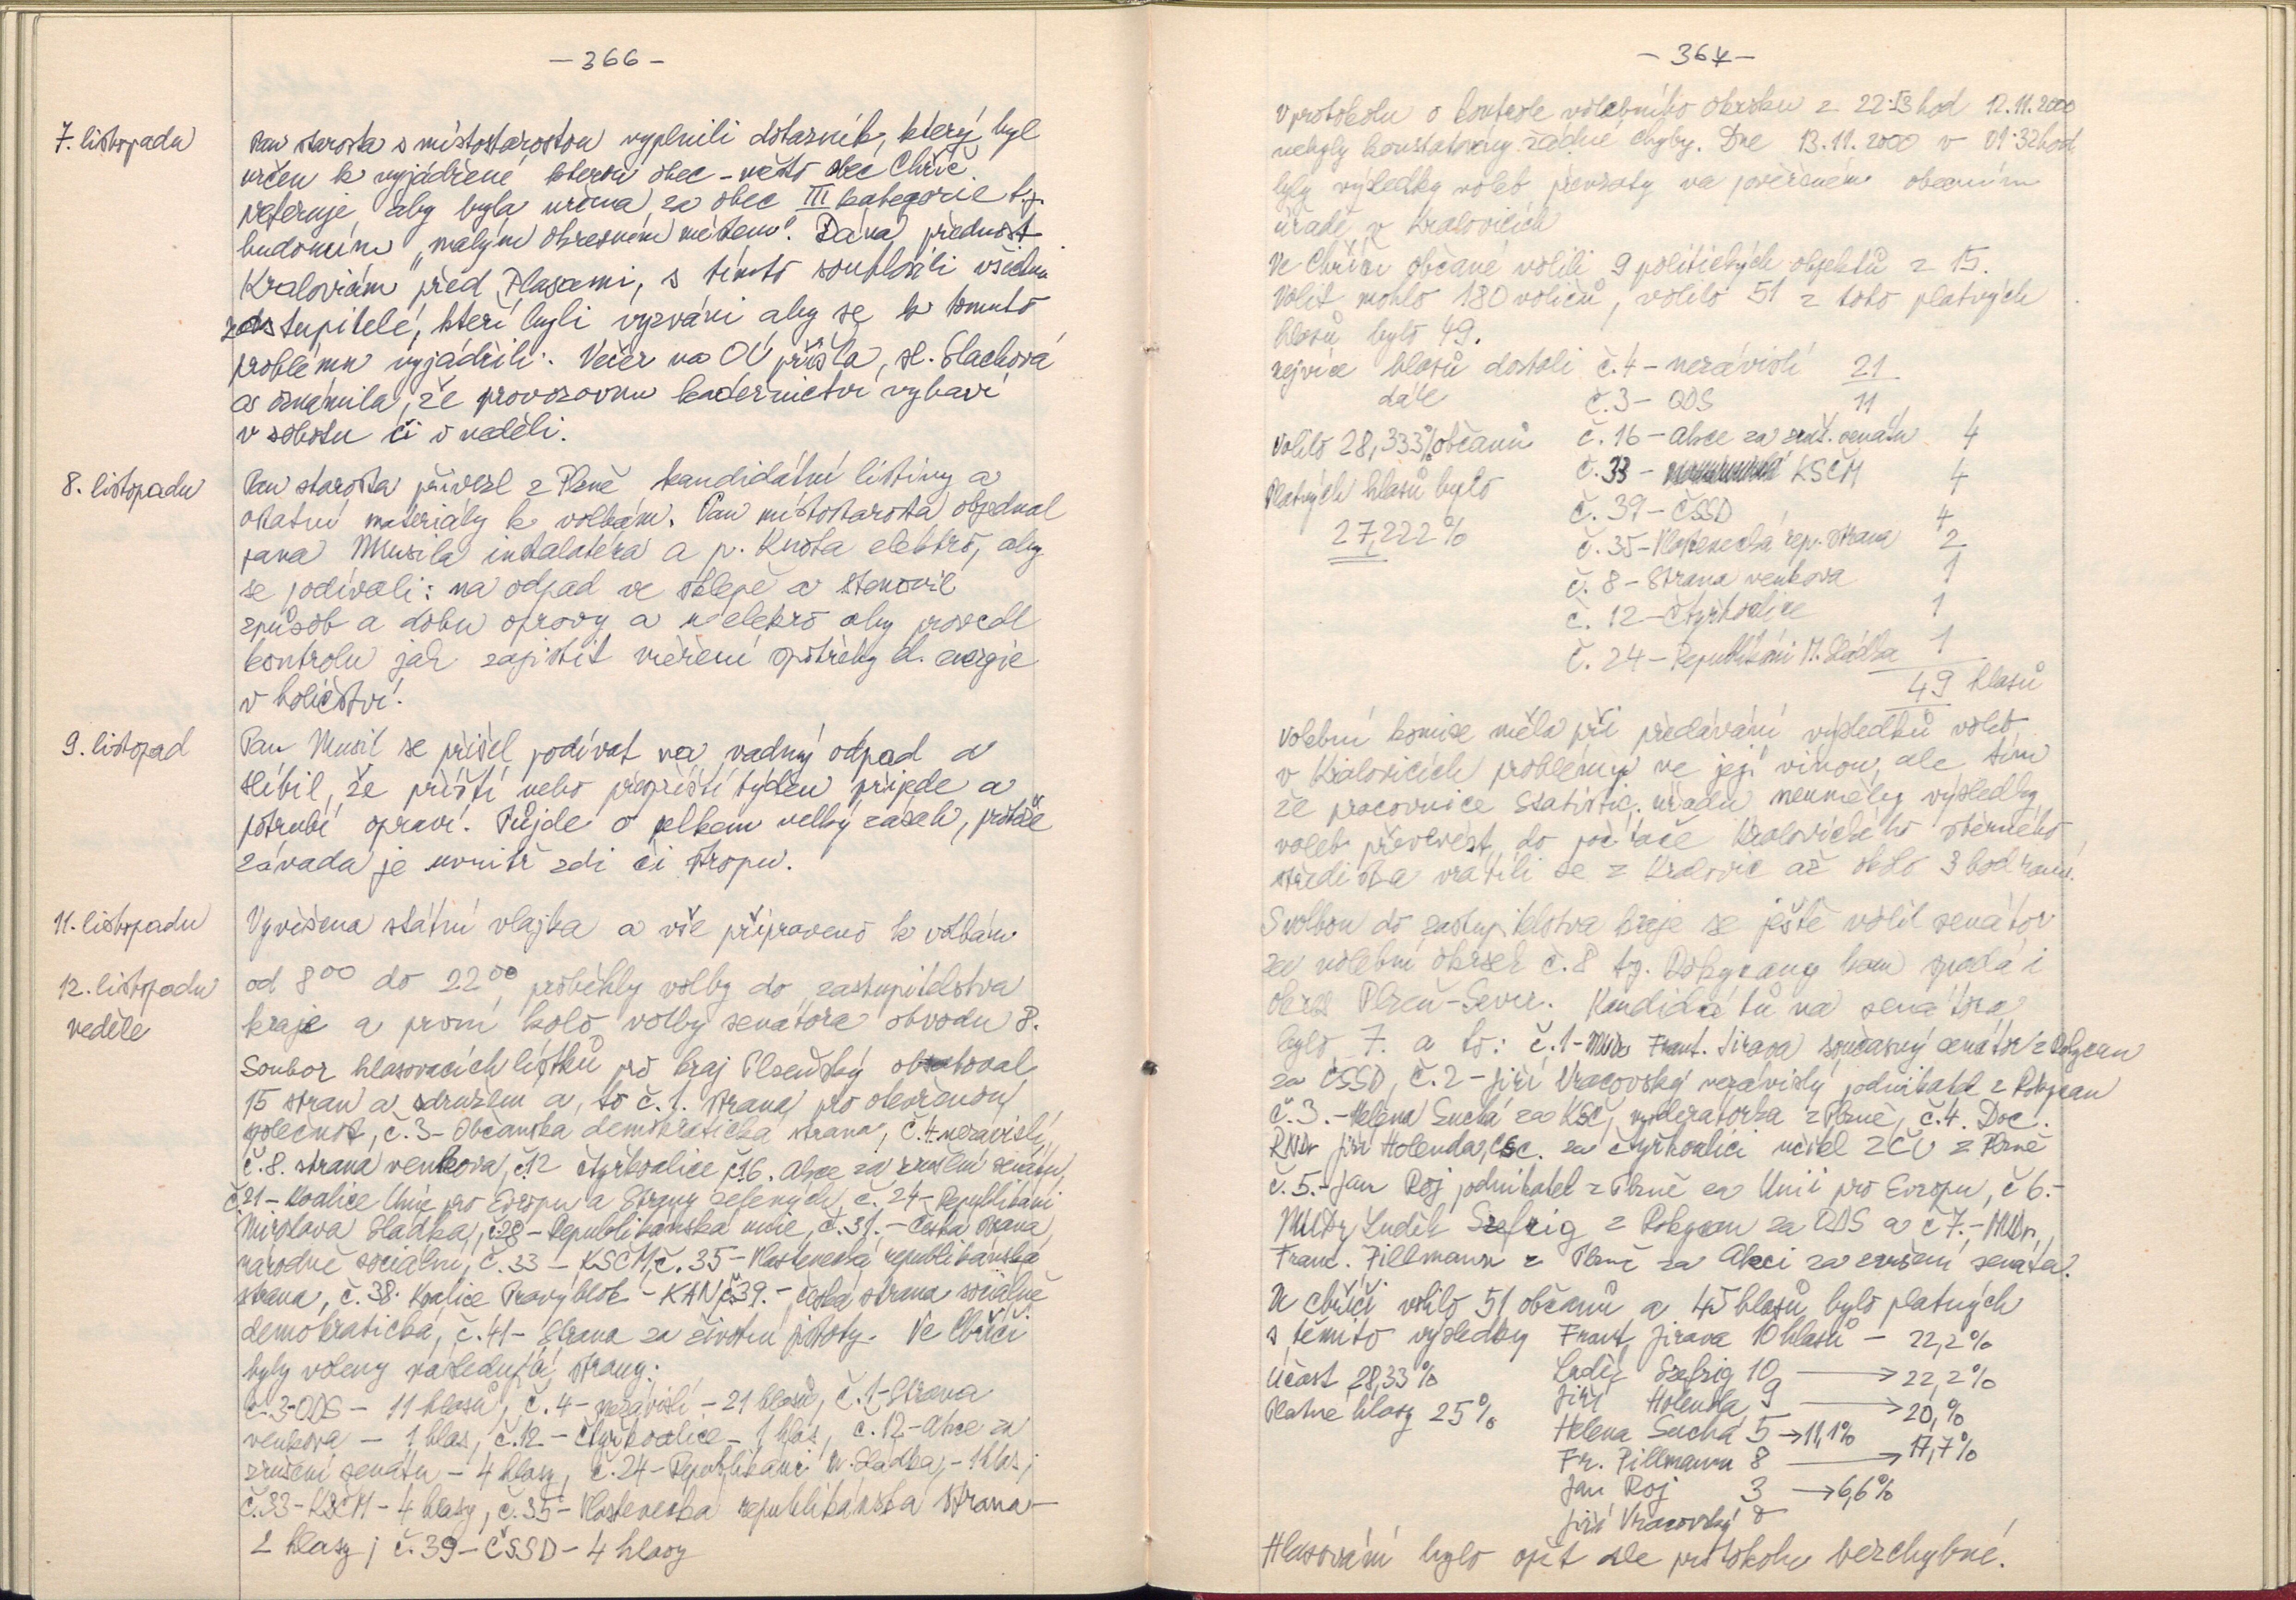 - 366 -
7. listopadu
Pan starosta s místostarostou vyplnili dotazník, který byl
určen k vyjádření kterou obec - město obec Chříč
preferuje, aby byla určena za obec III kategorie tj.
budoucím "malým okresním městem". Dána přednost
Kralovicím před Plasami, s tímto souhlasili všichni
zastupitelé, kteří byli vyzváni aby se k tomuto
problému vyjádřili. Večer na OÚ přišla, sl. Slachová
a oznámila, že provozovnu kadeřnictví vybaví
v sobotu či v neděli.
8. listopadu
Pan starosta přivezl z Plzně kandidátní listiny a
ostatní materiály k volbám. Pan místostarosta objednal
pana Musila instalatéra a p. Kusta elektro, aby
se podívali: na odpad ve sklepě a stanovil
způsob a dobu opravy a elektro aby provedl
kontrolu jak zajistit měření spotřeby el. energie
v holičství.
9. listopad
Pan Musil se přišel podívat na vadný odpad a
slíbil, že příští nebo přespříští týden přijede a
potrubí opraví. Půjde o celkem velký zásah, protože
závada je uvnitř zdi či stropu.
11. listopadu
Vyvěšena státní vlajka a vše připraveno k volbám
12. listopadu
neděle
od 8 00 do 22 00 proběhly volby do zastupitelstva
kraje a první kolo volby senátora obvodu 8.
Soubor hlasovacích lístků pro kraj Plzeňský obsahoval
15 stran a sdružení a, to č.1. strana pro otevřenou
společnost, č.3 - Občanská demokratická strana, č.4. nezávislí,
č.8. strana venkova, č.12 čtyřkoalice č.16. Akce za zrušení senátu,
č.21 - Koalice Unie pro Evropu a Strany zelených, č. 24 - Republikáni
Miroslava Sládka, č.28 - Republikánská unie, č.31. - Česká strana
národně sociální, č.33 - KSČM, č.35 - Vlastenecká republikánská
strana, č.38. Koalice Pravý blok - KAN, č.39. - česká strana sociálně
demokratická, č.41 - Strana za životní jistoty. Ve Chříči
byly voleny následující strany:
č.3 - ODS - 11 hlasů, č.4 - nezávislí - 21 hlasů, č.1 - Strana
venkova - 1 hlas, č.12 - Čtyřkoalice - 1 hlas, č.12 - Akce za
zrušení senátu - 4 hlasy, č.24 - Republikáni M. Sládka, - 1 hlas,
č.33 - KSČM - 4 hlasy, č.35 - Vlastenecká republikánská strana -
2 hlasy; č.39 - ČSSD - 4 hlasy
- 367 -
V protokolu o kontrole volebního okrsku z 22:53 hod 12.11.2000
nebyly konstatovány žádné chyby. Dne 13.11.2000 v 01:32 hod
byly výsledky voleb převzaty na pověřeném obecním
úřadě v Kralovicích
Ve Chříči občané volili 9 politických objektů z 15.
Volit mohlo 180 voličů, volilo 51 z toho platných
hlasů bylo 49.
nejvíce hlasů dostali č.4 - nezávislí 21
dále č.3 - ODS 11
Volilo 28,333% občanů č.16 - akce za zruš. senátu 4
č.33 - KSČM 4
Platných hlasů bylo č.39 - ČSSD 4
27,222% č.35 - Vlastenecká rep. strana 2
č.8 - Strana venkova 1
č.12 - Čtyřkoalice 1
č.24 - Republikáni M. Sládka 1
49 hlasů
Volební komise měla při předávání výsledků voleb
v Kralovicích problémy ve její vinou, ale tím
že pracovnice Statistic. úřadu neuměly výsledky
voleb převést do počítače Kralovického sběrného
střediska vrátili se z Kralovic až okolo 3 hod ranní.
S volbou do zastupitelstva kraje se ještě volil senátor
za volební okrsek č.8 tj. Rokycany kam spadá i
okres Plzeň-Sever. Kandidátů na senátora
bylo 7. a to: č.1 - MUDr Frant. Jirava současný senátor z Rokycan
za ČSSD, č.2 - Jiří Vracovský nezávislý podnikatel z Rokycan
č.3. - Helena Suchá za KSČ, z Plzně, č.4. Doc.
RNDr Jiří Holenda, CSc. za čtyřkoalici učitel ZČU z Plzně
č.5. - Jan Roj podnikatel z Plzně za Unii pro Evropu, č 6. -
MUDr Luděk Szefrig z Rokycan za ODS a č 7. - MUDr.
Frant. Fillmann z Plzně za Akci za zrušení senátu.
Ve Chříči volilo 51 občanů a 45 hlasů bylo platných
s těmito výsledky Frant. Jirava 10 hlasů - 22,2%
účast 28,33% Luděk Szefrig 10 → 22,2%
Jiří Holenda 9 → 20,%
Platné hlasy 25% Helena Suchá 5 → 11,1%
Fr. Fillmann 8 → 17,7%
Jan Roj 3 → 6,6%
Jiří Vracovský 0
Hlasování bylo opět dle protokolu bezchybné.